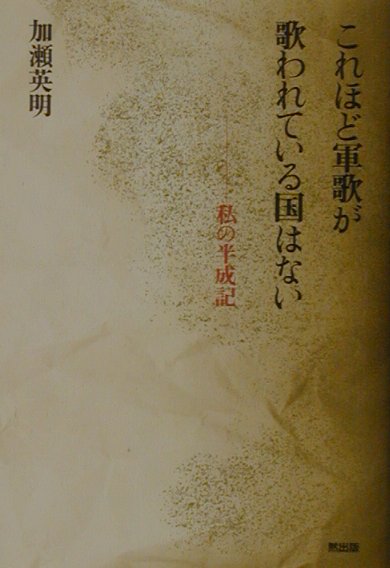 これほど軍歌が
歌われている国はない
私の半成記
加瀬英明
黙出版